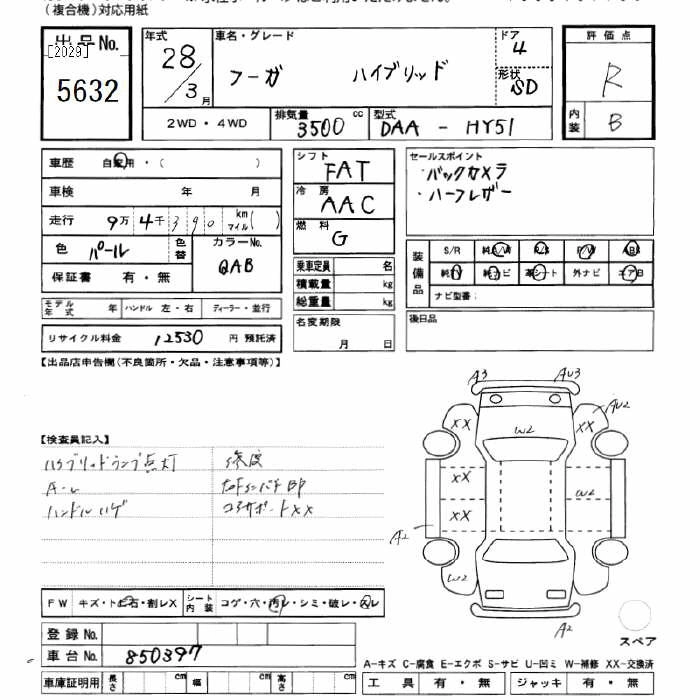 (複合機)対応用紙
出品No.
[2029]
5632
年式
28/3月
車名・グレード
フーガ ハイブリッド
ドア
4
形状
SD
評価点
R
内装
B
2WD・4WD
排気量
3500 cc
型式
DAA - HY51
車歴 自家用・( )
車検 年 月
走行 9万4千390 km マイル( )
色 パール
色替
カラーNo.
QAB
保証書 有・無
モデル年式 年 ハンドル 左・右 ディーラー・並行
リサイクル料金 12530 円 預託済
シフト
FAT
冷房
AAC
燃料
G
乗車定員 名
積載量 kg
総重量 kg
名変期限
月 日
セールスポイント
・バックカメラ
・ハーフレザー
装備品
S/R 純A/W P/S P/W ABS
純TV 純ナビ 革シート 外ナビ エアB
ナビ型番:
後日品
【出品店申告欄(不良箇所・欠品・注意事項等)】
【検査員記入】
ハイブリッドランプ点灯
ハンドルハゲ
コアサポートXX
A3
AU3
AU2
XX
W2
XX
XX
XX
W2
A2
W2
A2
スペア
FW キズ・トビ石・割レX シート内装 コゲ・穴・汚レ・シミ・破レ・スレ
登録No.
車台No. 850397
車庫証明用 長さ cm 幅 cm 高さ cm
A-キズ C-腐食 E-エクボ S-サビ U-凹ミ W-補修 XX-交換済
工具 有・無 ジャッキ 有・無